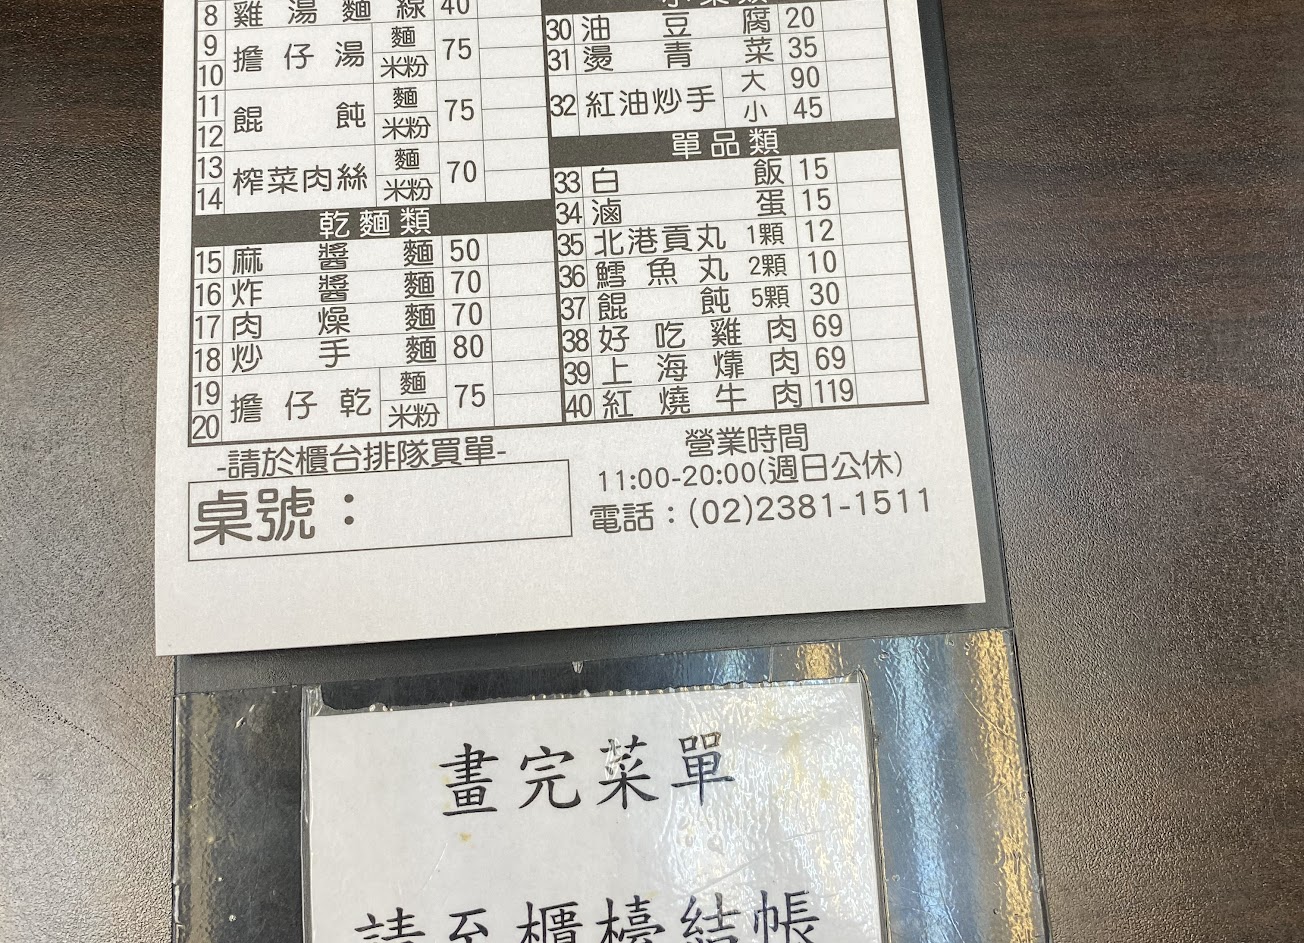 8 雞湯麵線 40
9 擔仔湯 麵 75
10 米粉
11 餛飩 麵 75
12 米粉
13 榨菜肉絲 麵 70
14 米粉
乾麵類
15 麻醬麵 50
16 炸醬麵 70
17 肉燥麵 70
18 炒手麵 80
19 擔仔乾 麵 75
20 米粉
-請於櫃台排隊買單-
桌號：
30 油豆腐 20
31 燙青菜 35
32 紅油炒手 大 90
小 45
單品類
33 白飯 15
34 滷蛋 15
35 北港貢丸 1顆 12
36 鱈魚丸 2顆 10
37 餛飩 5顆 30
38 好吃雞肉 69
39 上海㸆肉 69
40 紅燒牛肉 119
營業時間
11:00-20:00(週日公休)
電話：(02)2381-1511
畫完菜單
請至櫃檯結帳